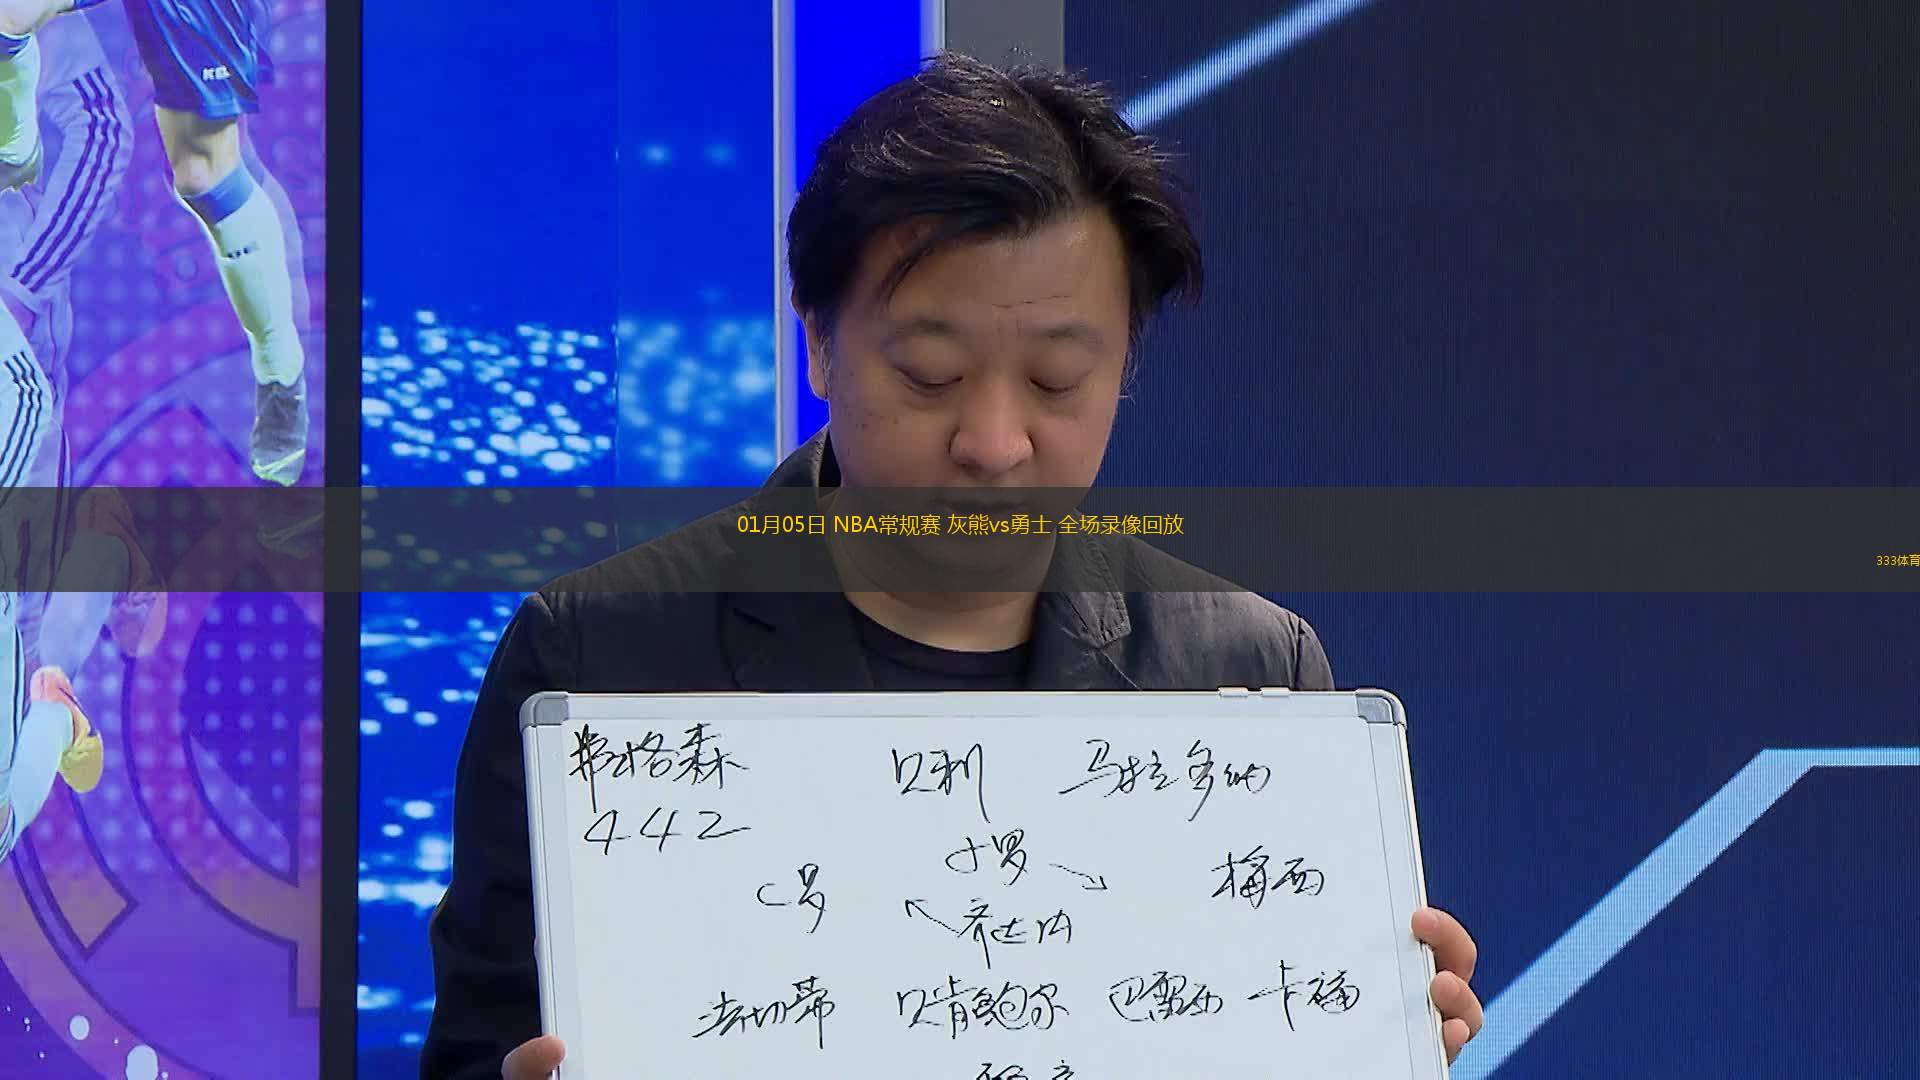 KEL
01月05日 NBA常规赛 灰熊vs勇士 全场录像回放
333体育
弗格森 贝利 马拉多纳
442
小罗
C罗 梅西
齐达内
法切蒂 贝肯鲍尔 巴雷西 卡福